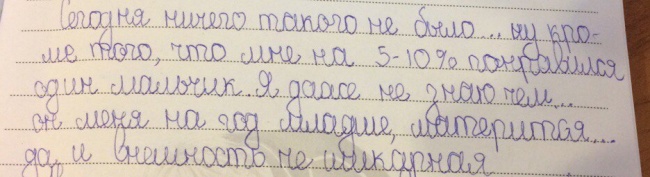 Сегодня ничего такого не было... ну кро-
ме того, что мне на 5-10% понравился
один мальчик. Я даже не знаю чем...
он меня на год младше, матерится...
да, и внешность не шикарная